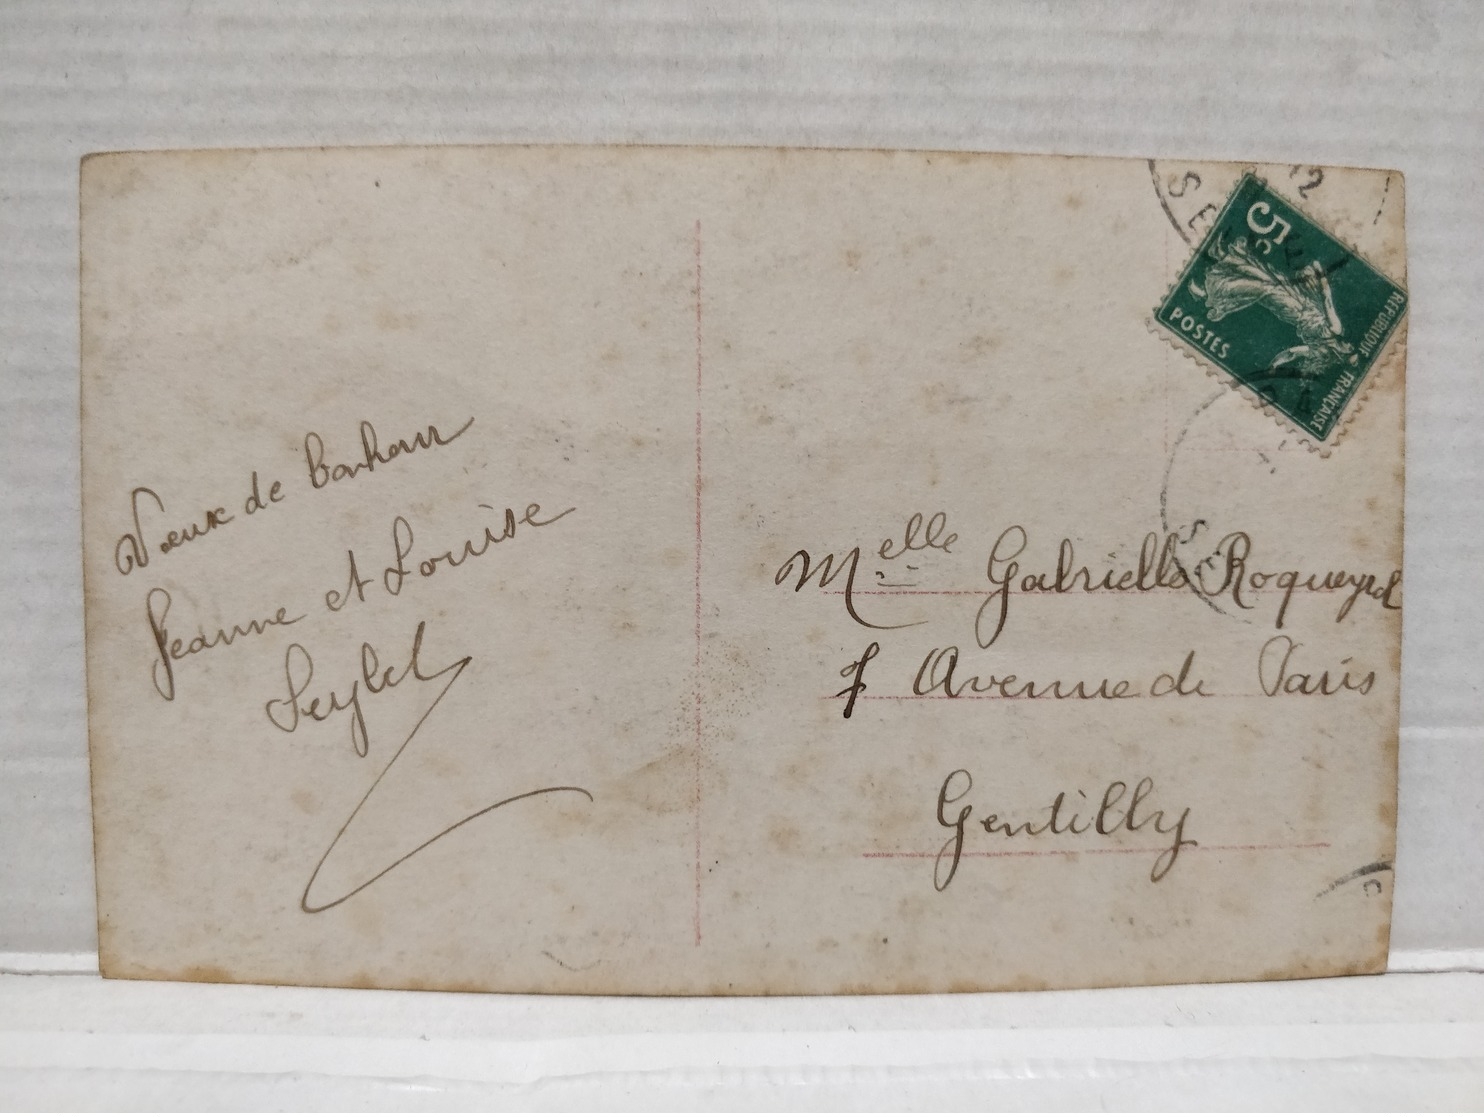 Vœux de bonheur
Jeanne et Louise
Seylet
5c
POSTES
REPUBLIQUE FRANÇAISE
12
SEINE
Melle Gabrielle Roqueyrol
7 Avenue de Paris
Gentilly